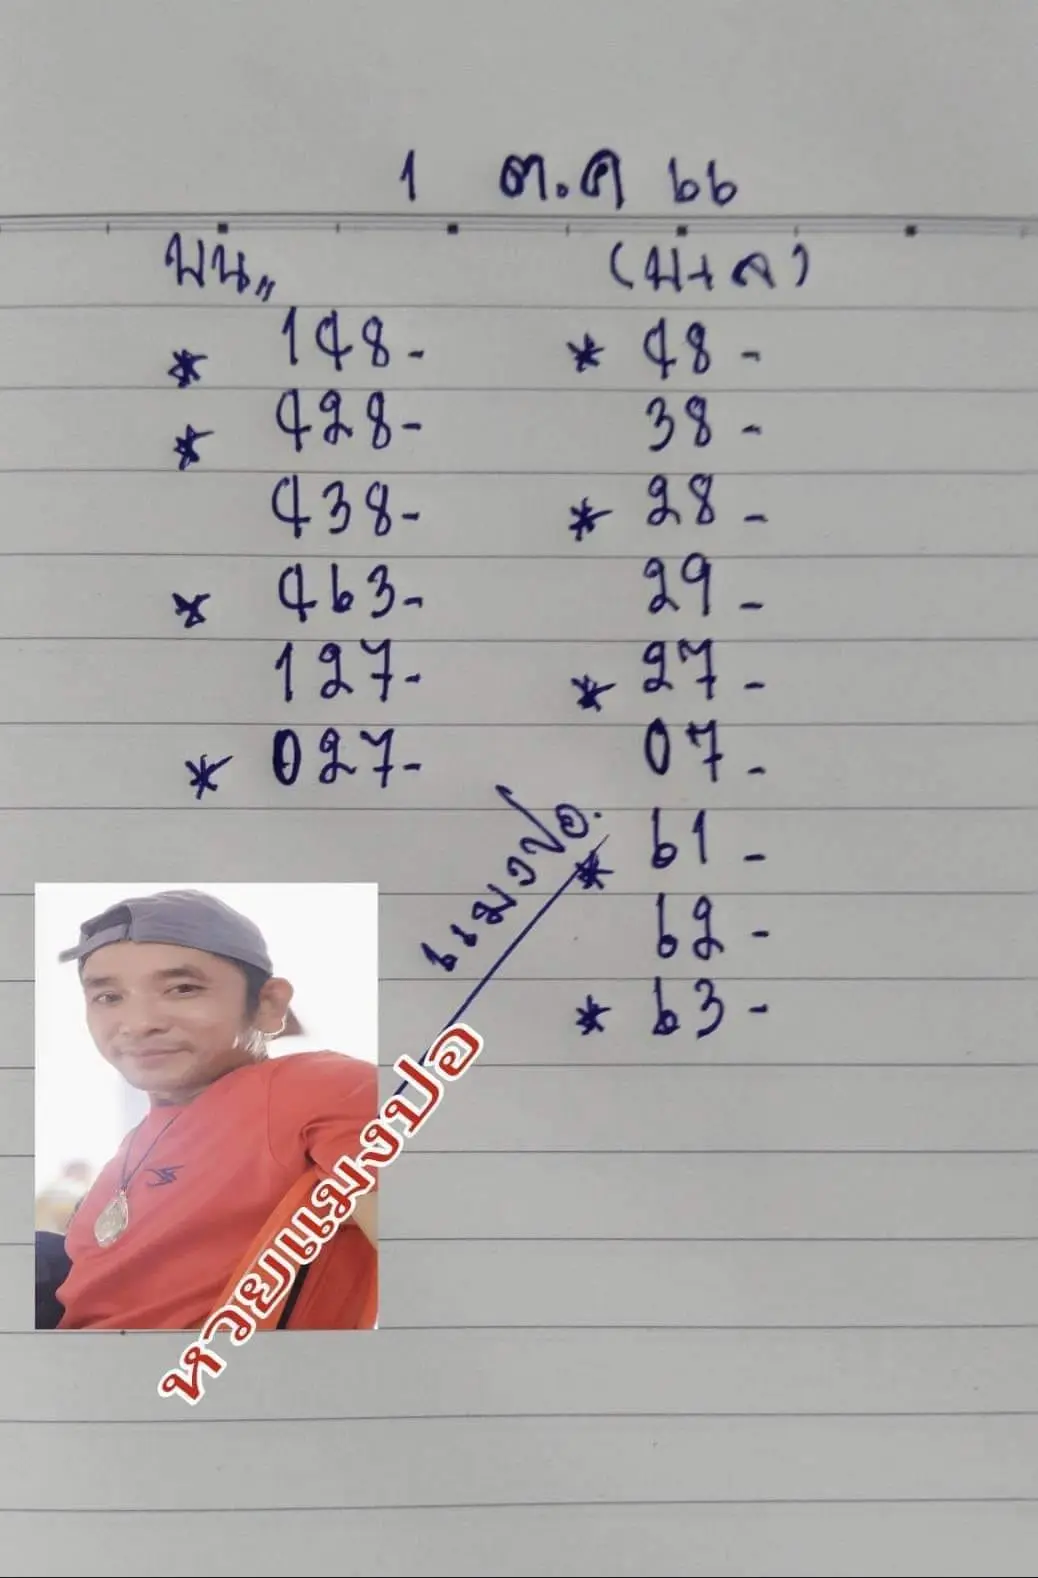 1 ต.ค 66
บน,, (บ+ล)
* 148- *48-
* 428- 38-
438- * 28-
* 463- 29-
127- * 27-
* 027- 07-
* 61-
62-
* 63-
แมงปอ.
หวยแมงปอ